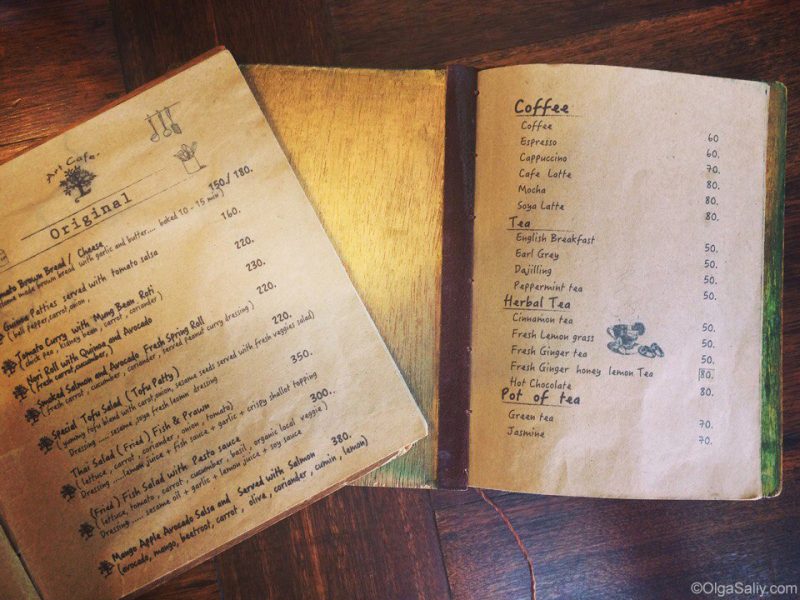 Art Cafe.
Original
mato Brown Bread / Cheese 150./ 180.
made brown bread with garlic and butter.... baked 10 - 15 min )
Quinoa Patties served with tomato salsa 160.
( bell pepper, carrot, onion ,
Tomato Curry with Mung Bean Roti 220.
( chick pea , kidney bean, carrot , coriander )
Nori Roll with Quinoa and Avocado 230.
( fresh carrot, cucumber, )
Smoked Salmon and Avocado Fresh Spring Roll 220.
( fresh carrot , cucumber , coriander , served peanut curry dressing )
Special Tofu Salad ( Tofu Patty )
( yummy tofu blend with carot, onion, sesame seeds served with fresh veggies salad)
Dressing ..... sesame , soya fresh lesmin dressing
Thai Salad ( Fried ) Fish & Prawn 350.
( lettuce , carrot , coriander , onion , tomato)
Dressing .....lemon juice + fish sauce + garlic + crispy shallot topping
(Fried ) Fish Salad with Pesto sauce 300..
( lettuce, tomato , carrot , cucumber , basil , organic local veggie )
Dressing ..... sesame oil + garlic + lemon juice + soy sauce
Mango Apple Avocado Salsa and Served with Salmon 380.
(avocado, mango, beetroot, carrot , olive , coriander , cumin , lemon)
Coffee
Coffee 60
Espresso 60.
Cappuccino 70.
Cafe Lotte 80.
Mocha 80.
Soya Latte 80.
Tea
English Breakfast 50.
Earl Grey 50.
Dajilling 50.
Peppermint tea 50.
Herbal Tea
Cinnamon tea 50.
Fresh Lemon grass 50.
Fresh Ginger tea 50.
Fresh Ginger honey lemon Tea 80.
Hot Chocolate 80.
Pot of tea
Green tea 70.
Jasmine 70.
©OlgaSaliy.com